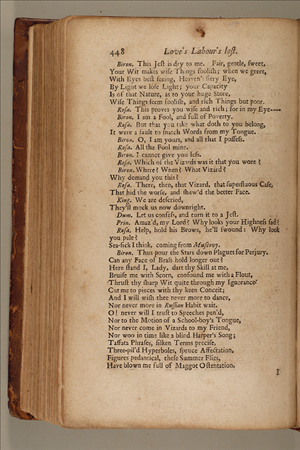 448 Love's Labour's lost.
Biron. This Jest is dry to me. Fair, gentle, sweet,
Your Wit makes wise Things foolish; when we greet,
With Eyes best seeing, Heaven's fiery Eye,
By Light we lose Light; your Capacity
Is of that Nature, as to your huge Store,
Wise Things seem foolish, and rich Things but poor.
Rosa. This proves you wise and rich; for in my Eye——
Biron. I am a Fool, and full of Poverty.
Rosa. But that you take what doth to you belong,
It were a fault to snatch Words from my Tongue.
Biron. O, I am yours, and all that I possess.
Rosa. All the Fool mine.
Biron. I cannot give you less.
Rosa. Which of the Vizards was it that you wore?
Biron. Where? When? What Vizard?
Why demand you this?
Rosa. There, then, that Vizard, that superfluous Case,
That hid the worse, and shew'd the better Face.
King. We are descried,
They'll mock us now downright.
Dum. Let us confess, and turn it to a Jest.
Prin. Amaz'd, my Lord? Why looks your Highness sad?
Rosa. Help, hold his Brows, he'll swound: Why look
you pale?
Sea-sick I think, coming from Muscovy.
Biron. Thus pour the Stars down Plagues for Perjury.
Can any Face of Brass hold longer out?
Here stand I, Lady, dart thy Skill at me,
Bruise me with Scorn, confound me with a Flout,
Thrust thy sharp Wit quite through my Ignorance'
Cut me to pieces with thy keen Conceit;
And I will wish thee never more to dance,
Nor never more in Russian Habit wait.
O! never will I trust to Speeches pen'd,
Nor to the Motion of a School-boy's Tongue,
Nor never come in Vizards to my Friend,
Nor woo in time like a blind Harper's Song;
Taffata Phrases, silken Terms precise,
Three-pil'd Hyperboles, spruce Affectation,
Figures pedantical, these Summer Flies,
Have blown me full of Maggot Ostentation.
I